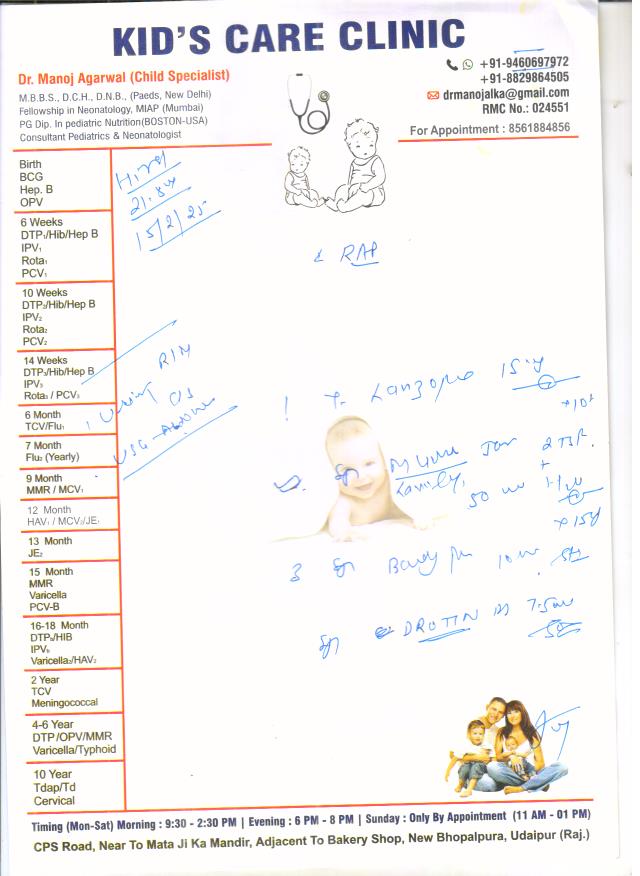 KID'S CARE CLINIC
Dr. Manoj Agarwal (Child Specialist)
M.B.B.S., D.C.H., D.N.B., (Paeds, New Delhi)
Fellowship in Neonatology, MIAP (Mumbai)
PG Dip. In pediatric Nutrition(BOSTON-USA)
Consultant Pediatrics & Neonatologist
+91-9460697972
+91-8829864505
drmanojalka@gmail.com
RMC No.: 024551
For Appointment : 8561884856
Birth
BCG
Hep. B
OPV
6 Weeks
DTP₁/Hib/Hep B
IPV₁
Rota₁
PCV₁
10 Weeks
DTP₂/Hib/Hep B
IPV₂
Rota₂
PCV₂
14 Weeks
DTP₃/Hib/Hep B
IPV₃
Rota₃ / PCV₃
6 Month
TCV/Flu₁
7 Month
Flu₂ (Yearly)
9 Month
MMR / MCV₁
12 Month
HAV₁ / MCV₂/JE₁
13 Month
JE₂
15 Month
MMR
Varicella
PCV-B
16-18 Month
DTP₄/HIB
IPV₄
Varicella₂/HAV₂
2 Year
TCV
Meningococcal
4-6 Year
DTP /OPV/MMR
Varicella/Typhoid
10 Year
Tdap/Td
Cervical
15/2/25
RAP
1 T. 15
2 TSF.
50
3 10
DROTIN 7.5
Timing (Mon-Sat) Morning : 9:30 - 2:30 PM | Evening : 6 PM - 8 PM | Sunday : Only By Appointment (11 AM - 01 PM)
CPS Road, Near To Mata Ji Ka Mandir, Adjacent To Bakery Shop, New Bhopalpura, Udaipur (Raj.)